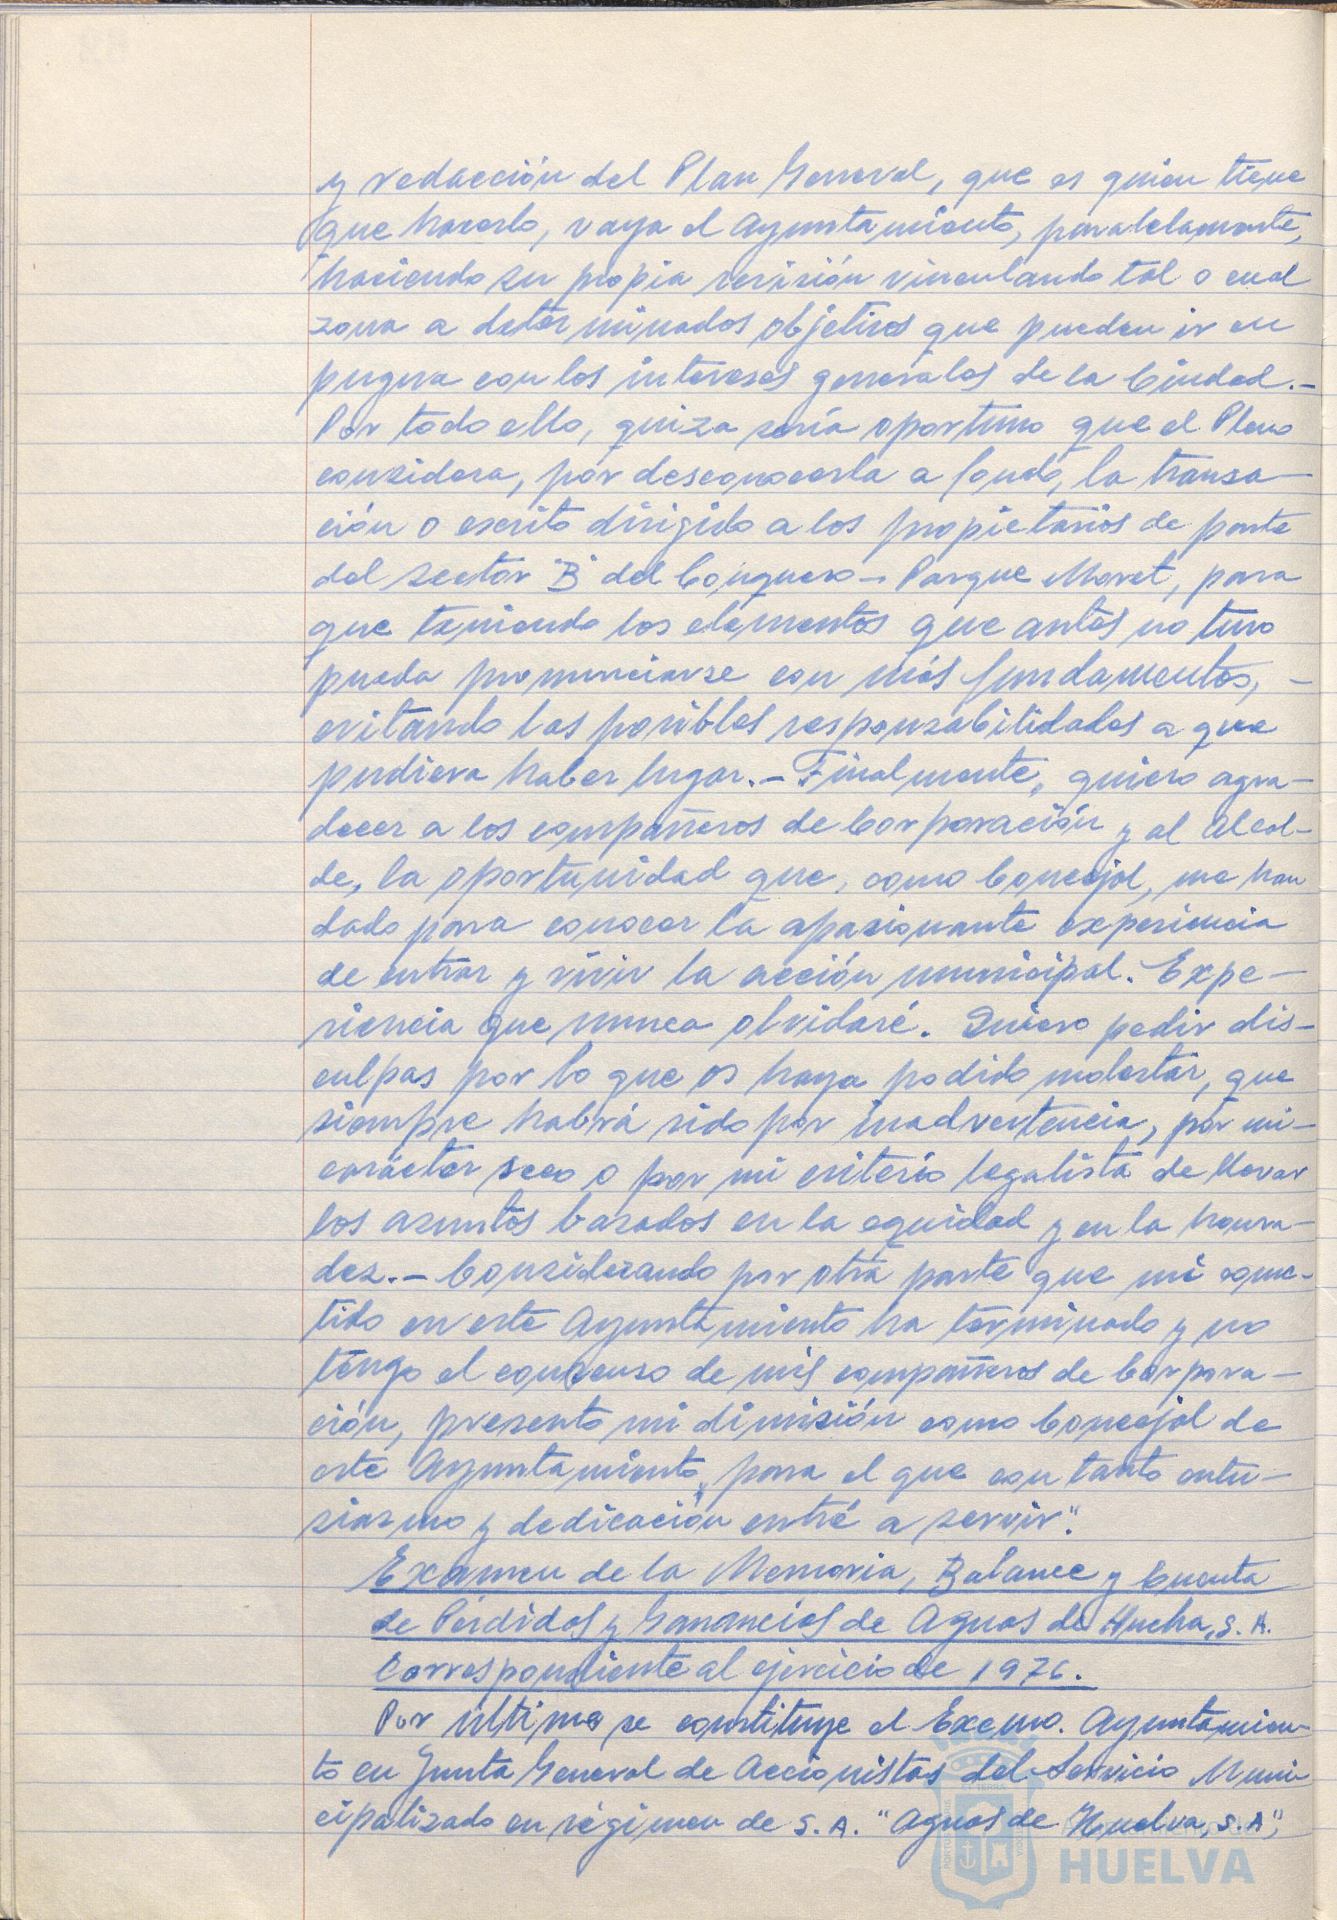 y redacción del Plan General, que es quien tiene
que hacerlo, vaya el Ayuntamiento, paralelamente,
haciendo su propia revisión vinculando tal o cual
zona a determinados objetivos que pueden ir en
pugna con los intereses generales de la Ciudad.-
Por todo ello, quiza sería oportuno que el Pleno
considera, por desconocerla a fondo, la transa-
ción o escrito dirigido a los propietarios de parte
del sector "B" del Conquero - Parque Moret, para
que teniendo los elementos que antes no tuvo
pueda pronunciarse con más fundamentos, -
evitando las posibles responsabilidades a que
pudiera haber lugar.- Finalmente, quiero agra-
decer a los compañeros de Corporación y al Alcal-
de, la oportunidad que, como Concejal, me han
dado para conocer la apasionante experiencia
de entrar y vivir la acción municipal. Expe-
riencia que nunca olvidaré. Quiero pedir dis-
culpas por lo que os haya podido molestar, que
siempre habrá sido por inadvertencia, por mi-
carácter seco o por mi criterio legalista de llevar
los asuntos basados en la equidad y en la honra-
dez.- Considerando por otra parte que mi come-
tido en este Ayuntamiento ha terminado y no
tengo el consenso de mis compañeros de Corpora-
ción, presento mi dimisión como Concejal de
este Ayuntamiento, para el que con tanto entu-
siasmo y dedicación entré a servir".
Examen de la Memoria, Balance y Cuenta
de Pérdidas y Ganancias de Aguas de Huelva, S. A.
Correspondiente al ejercicio de 1976.
Por último se constituye el Excmo. Ayuntamien-
to en Junta General de Accionistas del Servicio Muni-
cipalizado en régimen de S. A. "Aguas de Huelva, S. A",
HUELVA